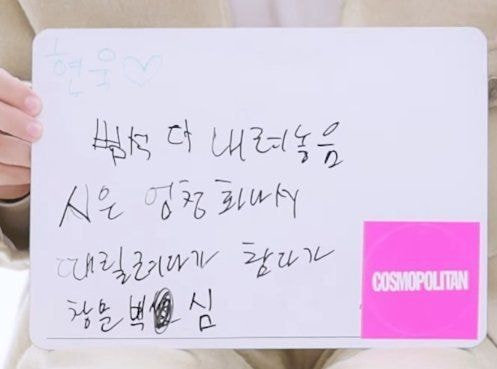 현욱♡
범석 다 내려놓음
시은 엄청 화나서
때릴려다가 참다가
창문 벽 심
COSMOPOLITAN